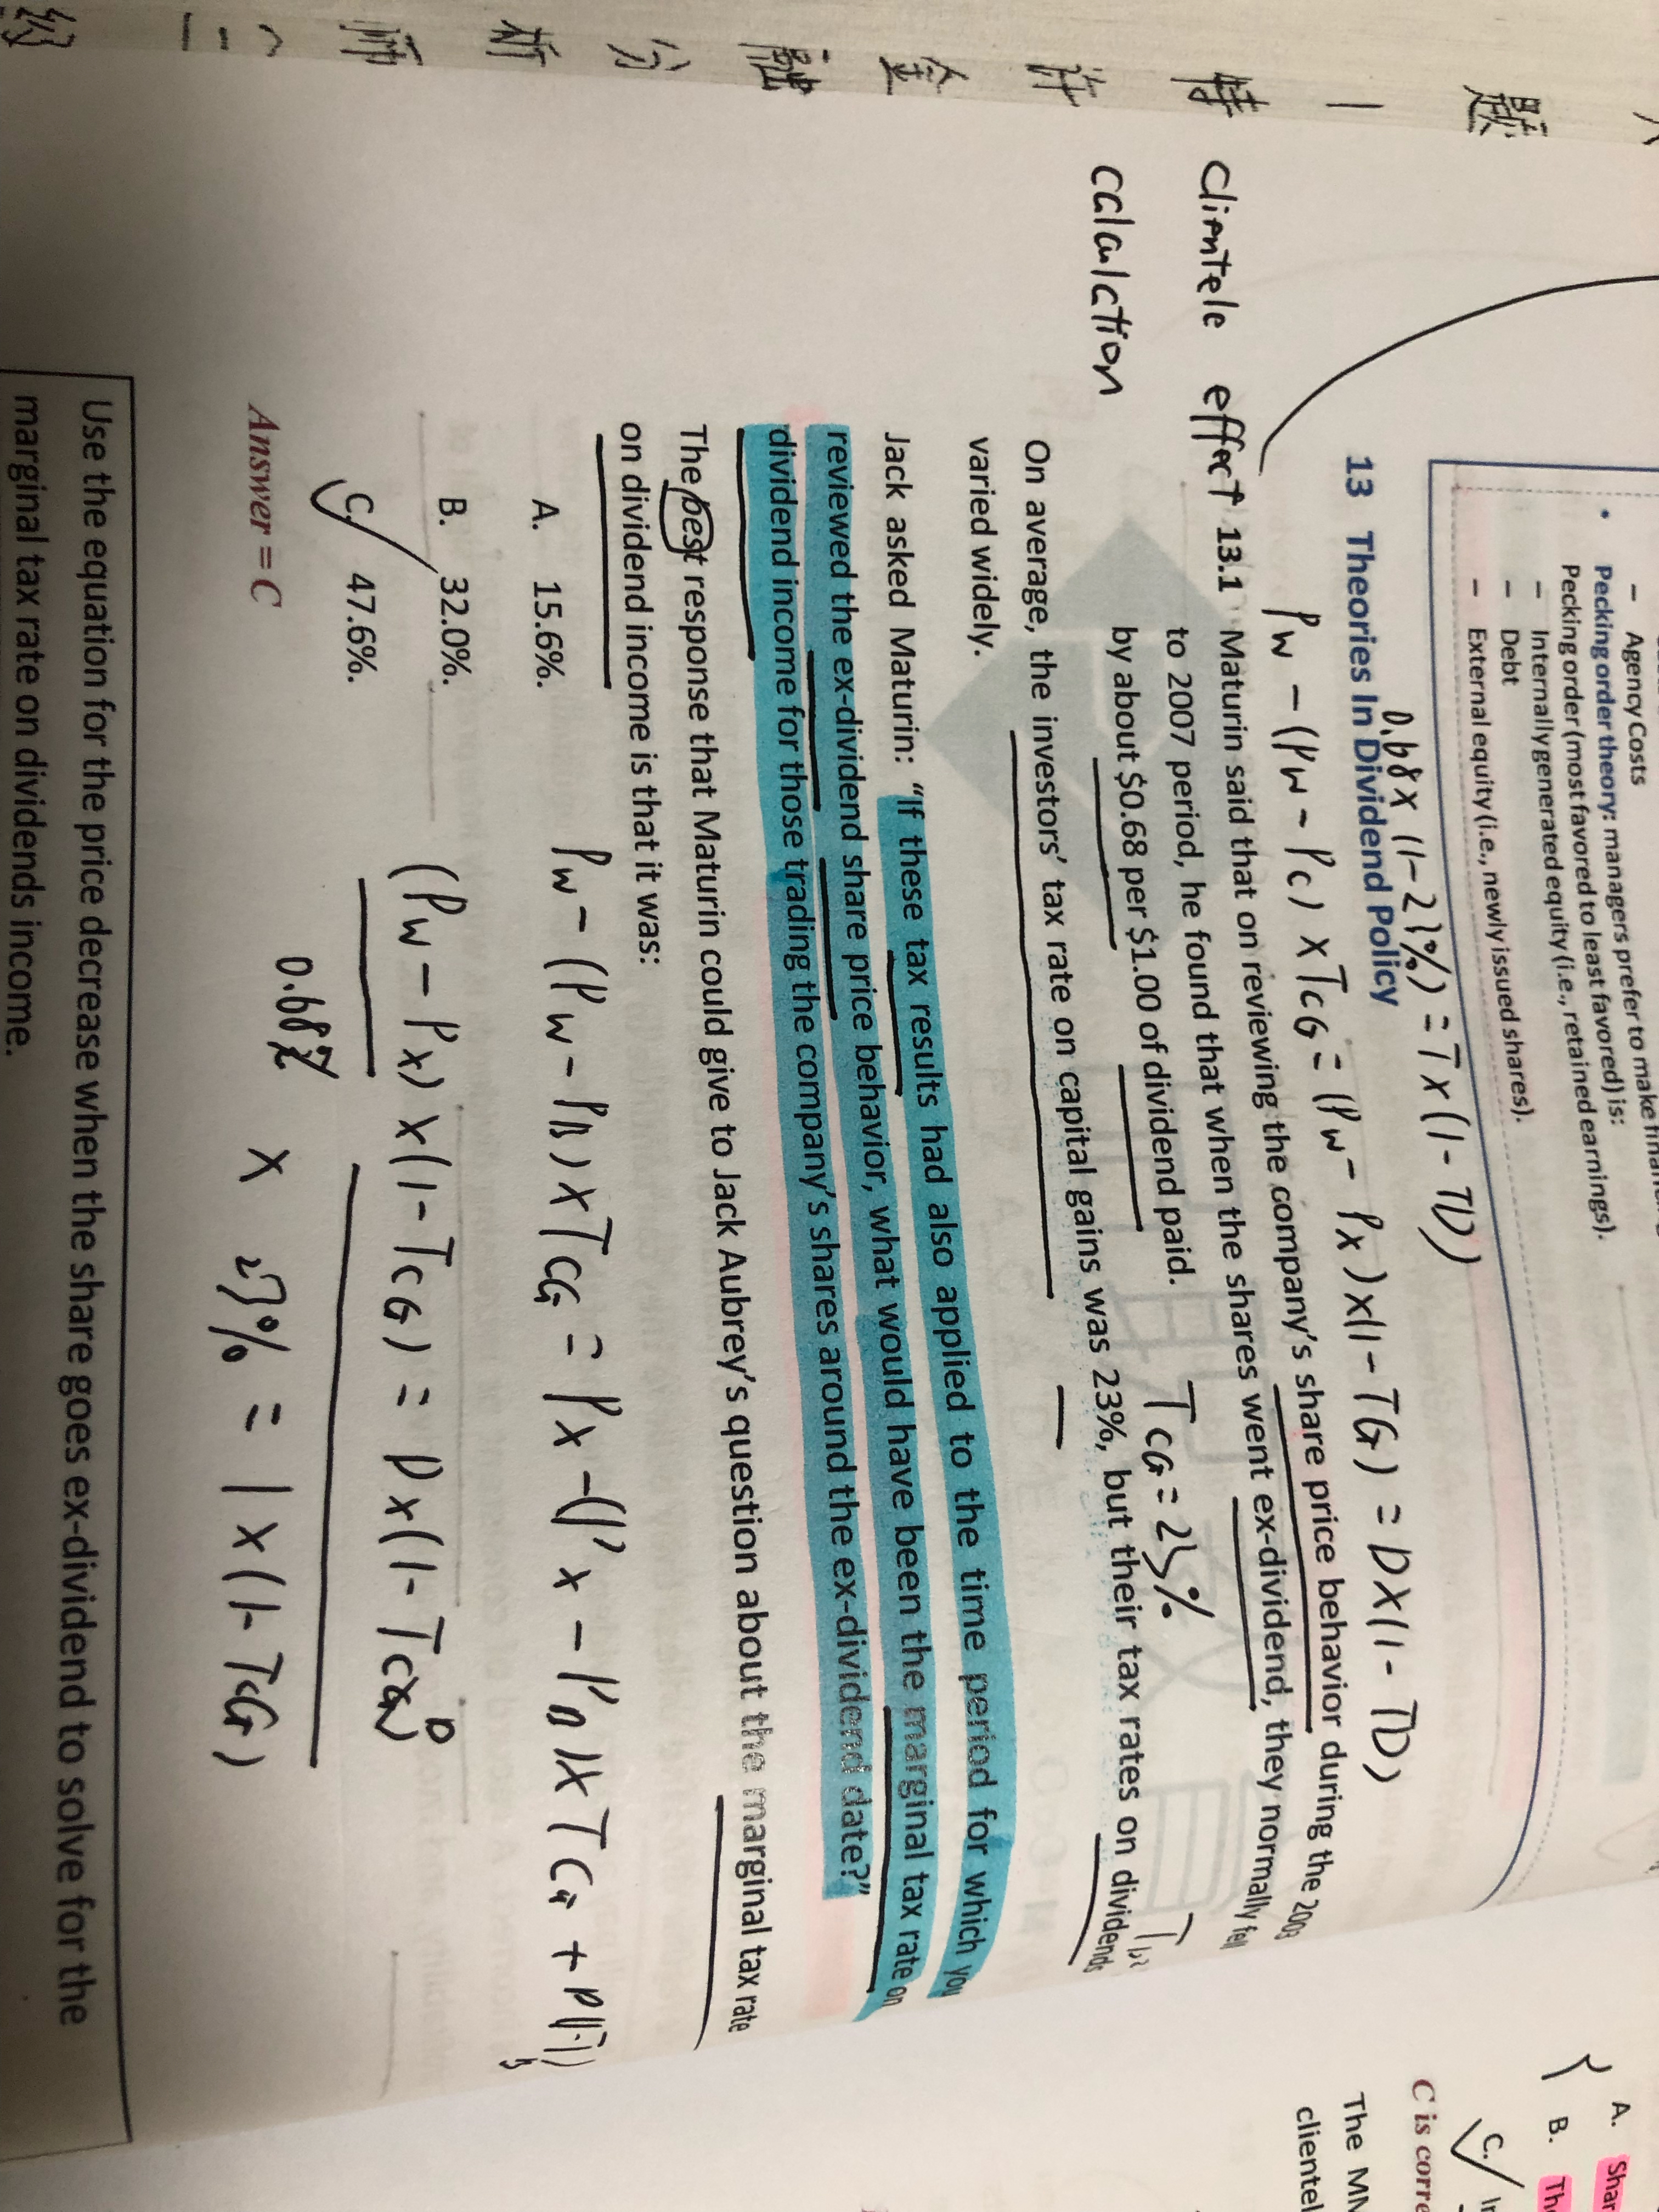 特许金融分析师(二
– Agency Costs
• Pecking order theory: managers prefer to make
Pecking order (most favored to least favored) is:
– Internally generated equity (i.e., retained earnings).
– Debt
– External equity (i.e., newly issued shares).
0.68 × (1-23%) = 1 × (1 - TD)
13 Theories In Dividend Policy
Pw - (Pw - Pc) × TCG = (Pw - Px) × (1 - TG) = D × (1 - TD)
Clientele effect
calculation
13.1 Maturin said that on reviewing the company's share price behavior during the 2003
to 2007 period, he found that when the shares went ex-dividend, they normally fell
by about $0.68 per $1.00 of dividend paid.
TCG = 23%
On average, the investors' tax rate on capital gains was 23%, but their tax rates on dividends
varied widely.
Jack asked Maturin: "If these tax results had also applied to the time period for which you
reviewed the ex-dividend share price behavior, what would have been the marginal tax rate on
dividend income for those trading the company's shares around the ex-dividend date?"
The best response that Maturin could give to Jack Aubrey's question about the marginal tax rate
on dividend income is that it was:
A. 15.6%.
Pw - (Pw - PB) × TCG = Px - (Px - PB) × TCG +
B. 32.0%.
(Pw - Px) × (1 - TCG) = D × (1 - TD)
C. 47.6%.
0.68 × 27% = 1 × (1 - TCG)
Answer = C
Use the equation for the price decrease when the share goes ex-dividend to solve for the
marginal tax rate on dividends income.
A. Shar
B. Th
C. In
C is corre
The MM
clientel